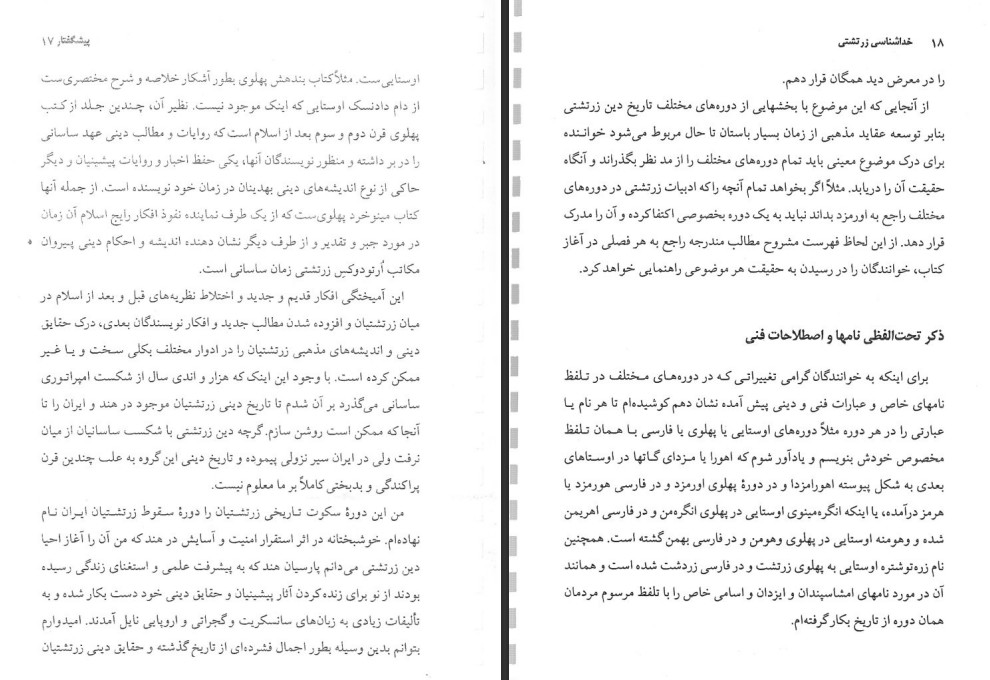 پیشگفتار ۱۷
اوستایی‌ست. مثلاً کتاب بندهش پهلوی بطور آشکار خلاصه و شرح مختصری‌ست
از دام دادنسک اوستایی که اینک موجود نیست. نظیر آن، چندین جلد از کتب
پهلوی قرن دوم و سوم بعد از اسلام است که روایات و مطالب دینی عهد ساسانی
را در بر داشته و منظور نویسندگان آنها، یکی حفظ اخبار و روایات پیشینیان و دیگر
حاکی از نوع اندیشه‌های دینی بهدینان در زمان خود نویسنده است. از جمله آنها
کتاب مینوخرد پهلوی‌ست که از یک طرف نماینده نفوذ افکار رایج اسلام آن زمان
در مورد جبر و تقدیر و از طرف دیگر نشان دهنده اندیشه و احکام دینی پیروان
مکاتب اُرتودوکسِ زرتشتی زمان ساسانی است.
این آمیختگی افکار قدیم و جدید و اختلاط نظریه‌های قبل و بعد از اسلام در
میان زرتشتیان و افزوده شدن مطالب جدید و افکار نویسندگان بعدی، درک حقایق
دینی و اندیشه‌های مذهبی زرتشتیان را در ادوار مختلف بکلی سخت و یا غیر
ممکن کرده است. با وجود این اینک که هزار و اندی سال از شکست امپراتوری
ساسانی می‌گذرد بر آن شدم تا تاریخ دینی زرتشتیان موجود در هند و ایران را تا
آنجا که ممکن است روشن سازم. گرچه دین زرتشتی با شکست ساسانیان از میان
نرفت ولی در ایران سیر نزولی پیموده و تاریخ دینی این گروه به علب چندین قرن
پراکندگی و بدبختی کاملاً بر ما معلوم نیست.
من این دورهٔ سکوت تاریخی زرتشتیان را دورهٔ سقوط زرتشتیان ایران نام
نهاده‌ام. خوشبختانه در اثر استقرار امنیت و آسایش در هند که من آن را آغاز احیا
دین زرتشتی می‌دانم پارسیان هند که به پیشرفت علمی و استغنای زندگی رسیده
بودند از نو برای زنده کردن آثار پیشینیان و حقایق دینی خود دست بکار شده و به
تألیفات زیادی به زبان‌های سانسکریت و گجراتی و اروپایی نایل آمدند. امیدوارم
بتوانم بدین وسیله بطور اجمال فشرده‌ای از تاریخ گذشته و حقایق دینی زرتشتیان
۱۸ خداشناسی زرتشتی
را در معرض دید همگان قرار دهم.
از آنجایی که این موضوع با بخشهایی از دوره‌های مختلف تاریخ دین زرتشتی
بنابر توسعه عقاید مذهبی از زمان بسیار باستان تا حال مربوط می‌شود خواننده
برای درک موضوع معینی باید تمام دوره‌های مختلف را از مد نظر بگذراند و آنگاه
حقیقت آن را دریابد. مثلاً اگر بخواهد تمام آنچه را که ادبیات زرتشتی در دوره‌های
مختلف راجع به اورمزد بداند نباید به یک دوره بخصوصی اکتفا کرده و آن را مدرک
قرار دهد. از این لحاظ فهرست مشروح مطالب مندرجه راجع به هر فصلی در آغاز
کتاب، خوانندگان را در رسیدن به حقیقت هر موضوعی راهنمایی خواهد کرد.
ذکر تحت‌اللفظی نامها و اصطلاحات فنی
برای اینکه به خوانندگان گرامی تغییراتی که در دوره‌های مختلف در تلفظ
نامهای خاص و عبارات فنی و دینی پیش آمده نشان دهم کوشیده‌ام تا هر نام یا
عبارتی را در هر دوره مثلاً دوره‌های اوستایی یا پهلوی یا فارسی با همان تلفظ
مخصوص خودش بنویسم و یادآور شوم که اهورا یا مزدای گاتها در اوستاهای
بعدی به شکل پیوسته اهورامزدا و در دورهٔ پهلوی اورمزد و در فارسی هورمزد یا
هرمز درآمده، یا اینکه انگره‌مینوی اوستایی در پهلوی انگره‌من و در فارسی اهریمن
شده و وهومنه اوستایی در پهلوی وهومن و در فارسی بهمن گشته است. همچنین
نام زره‌توشتره اوستایی به پهلوی زرتشت و در فارسی زردشت شده است و همانند
آن در مورد نامهای امشاسپندان و ایزدان و اسامی خاص را با تلفظ مرسوم مردمان
همان دوره از تاریخ بکار گرفته‌ام.